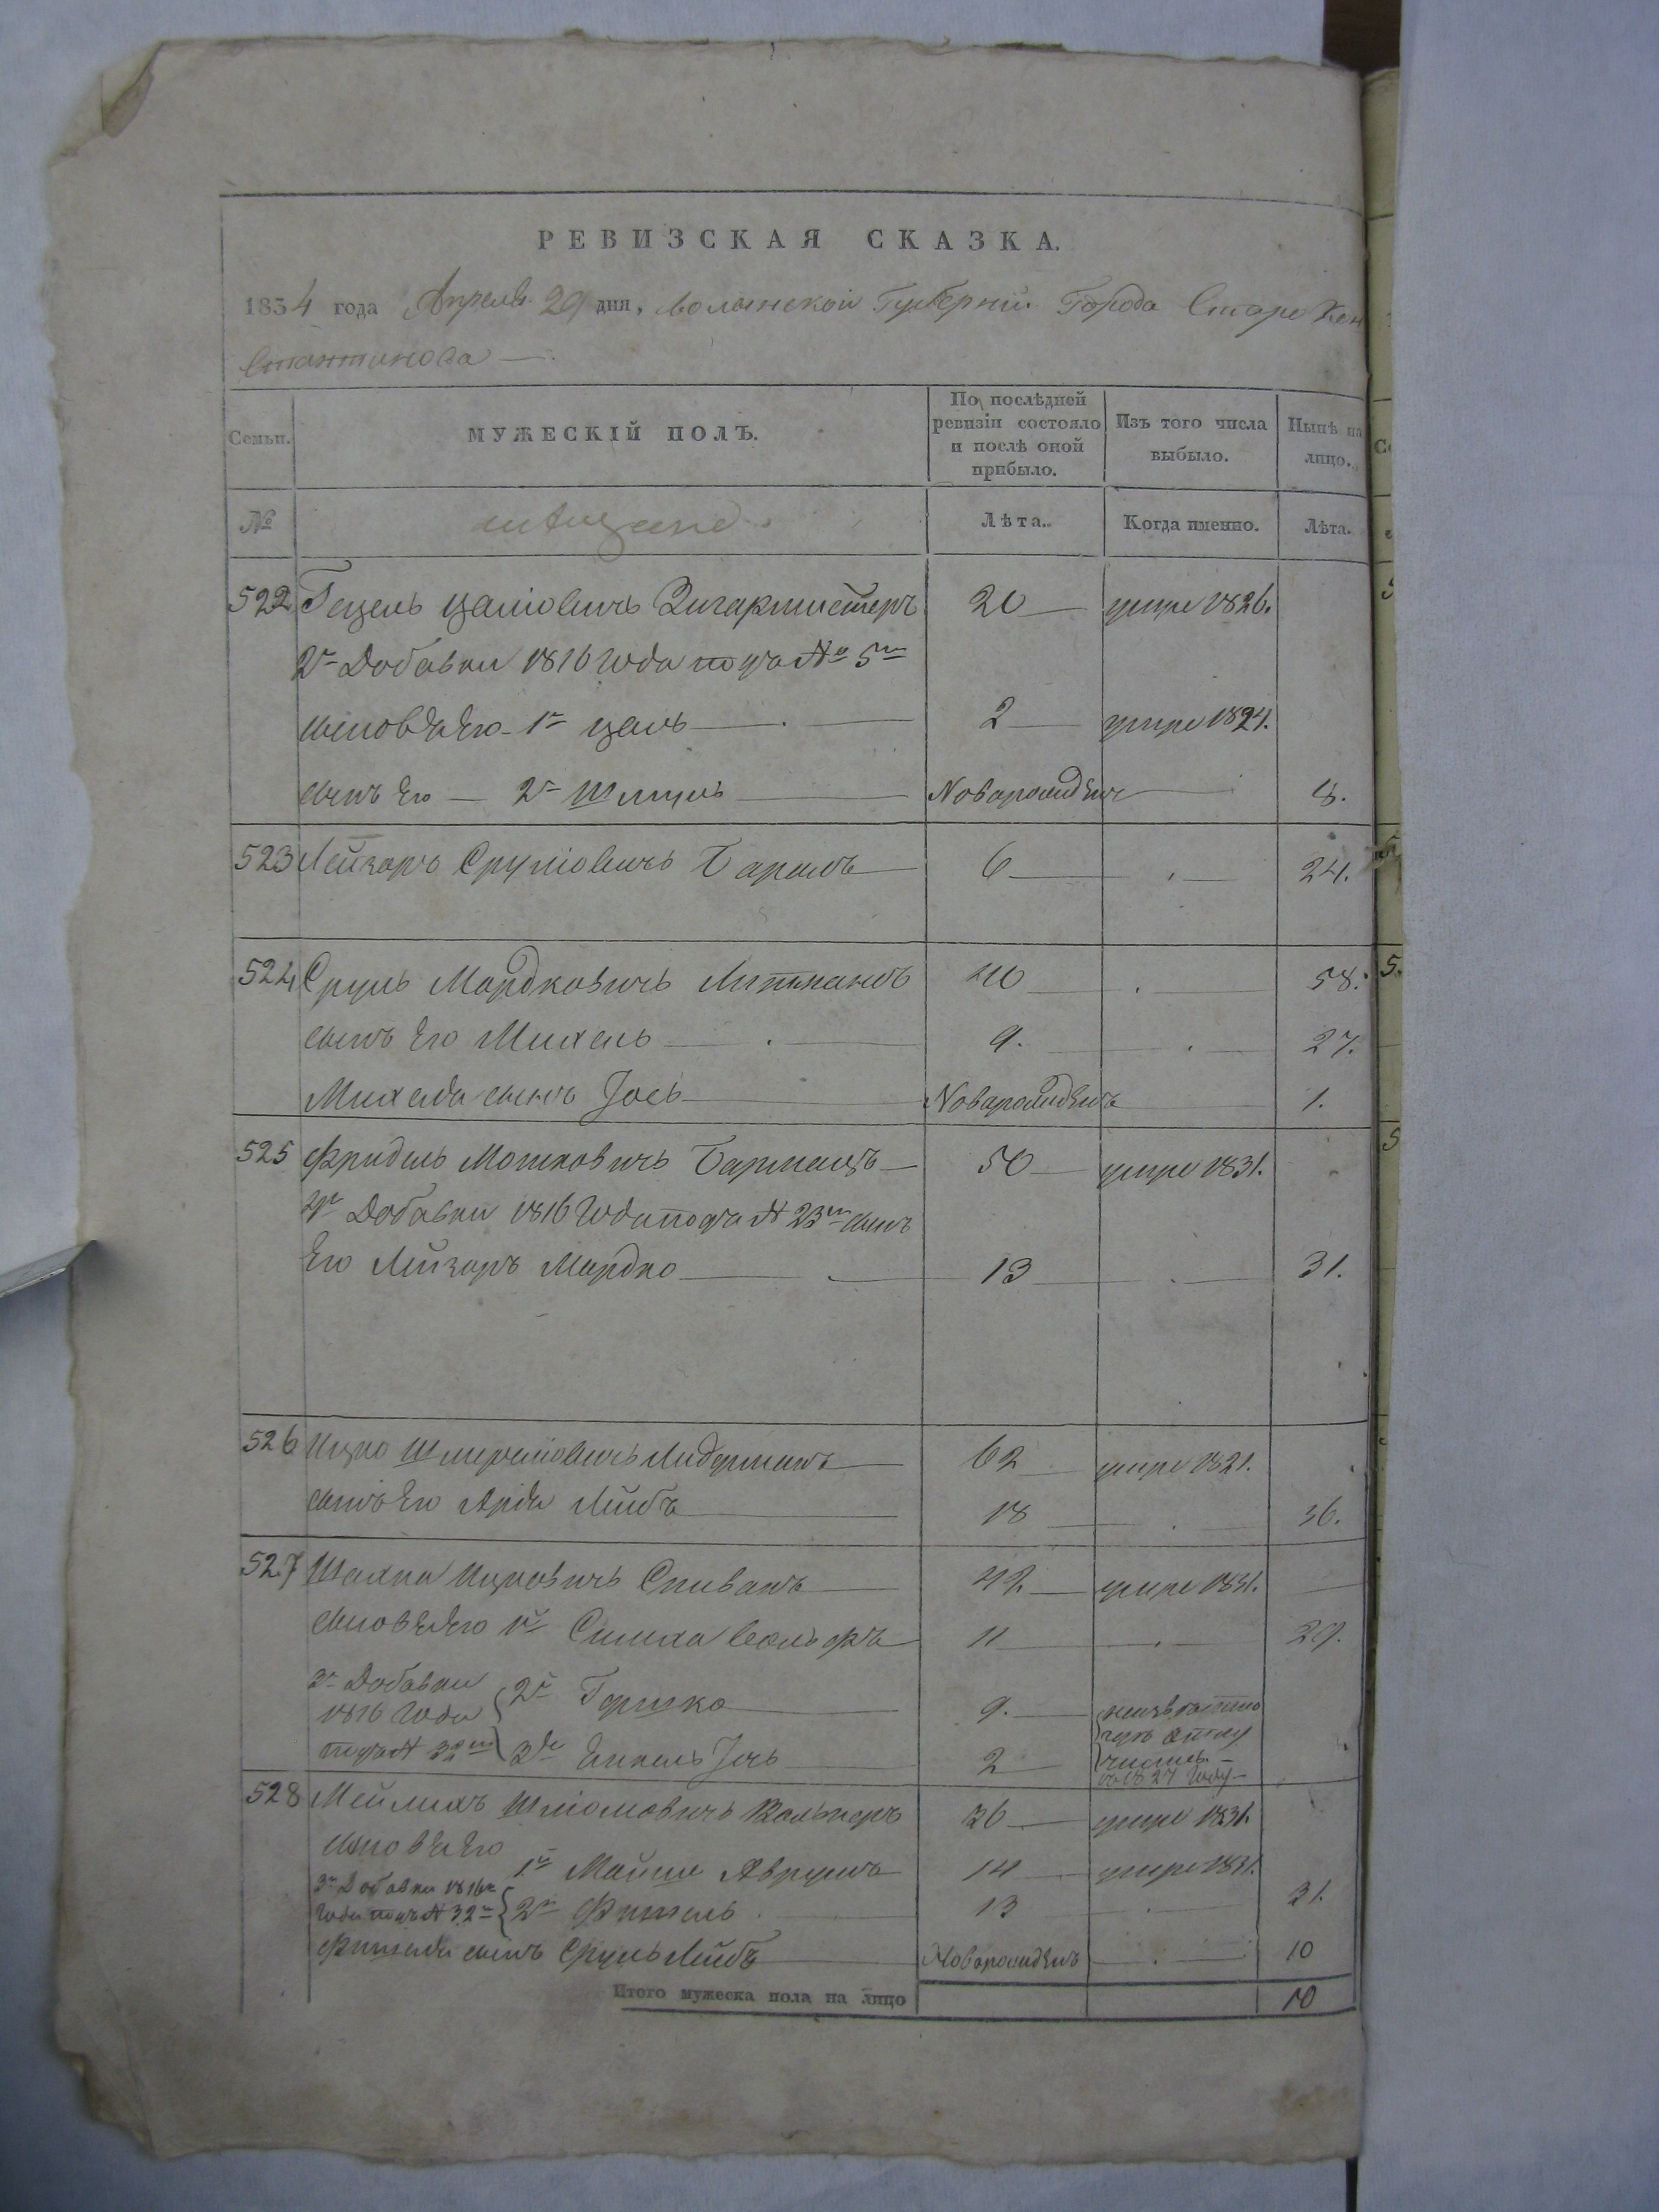 РЕВИЗСКАЯ СКАЗКА.
1834 года Апреля 29 дня, волынской Губернии Города Старо Кон
стантинова
Семьи. МУЖЕСКІЙ ПОЛЪ. По послѣдней ревизіи состояло и послѣ оной прибыло. Изъ того числа выбыло. Нынѣ на лицо.
№ мѣщане Лѣта. Когда именно. Лѣта.
522 Гецель Цаліовичъ 20 умре 1826.
2й Добавки 1816 года подъ № 5м
сыновья Его 1й Цаль 2 умре 1824.
сынъ Его 2й Шмуль Новорожденъ 8.
523 Лейзаръ Сруліовичъ 6 24.
524 Сруль Мордковичъ Литманъ 40 58.
сынъ Его Михель 9. 27.
Михеля сынъ Іось Новорожденъ 1.
525 Фридель Мошковичъ 50 умре 1831.
Добавки 1816 года подъ № 23м сынъ
Его Лейзоръ Мордко 13 31.
526 Ицко Лидерманъ 62 умре 1821.
сынъ Его Лейбъ 18 36.
527 Шахна Ицковичъ Спивакъ 42. умре 1831.
сыновья Его 1й Симха Вольфъ 11 29.
3й Добавки
1816 года 2й Гершко 9.
подъ № 32м 3й Іось 2
неизвестно
въ 27 году
528 Мейлихъ Шліомовичъ 36 умре 1831.
сыновья Его
1й Мойше Аврумъ 14 умре 1831.
3й Добавки 1816
года подъ № 32 2й Фишель 13 31.
Фишеля сынъ Сруль Лейбъ Новорожденъ 10
Итого мужеска пола на лицо 10